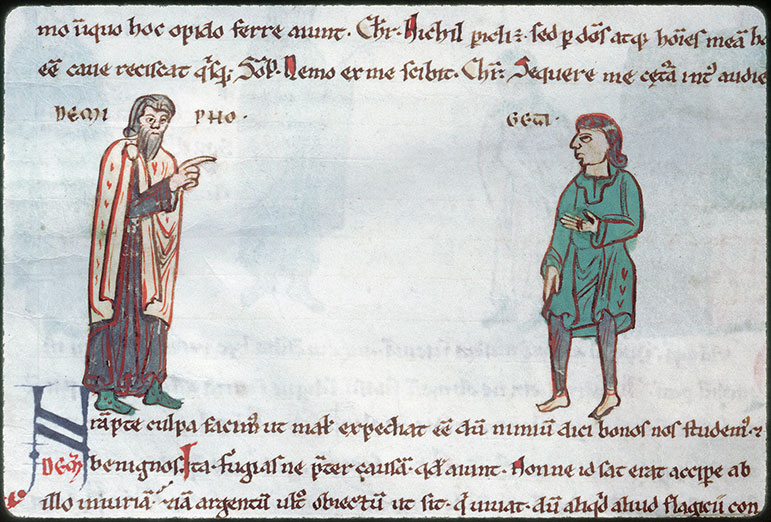 mo ũquo hoc opido ferre aiunt. Chr̄. Nichil picli ē. sed p dō̄s atq; hoīes meā h
eē̄ caue resciscat q̄sq;. Sōp. Nemo ex me scibit. Chr̄. Sequere me cet̄a int' audie
DEMI PHO. GETA.
Nr̄apte culpa facim' ut mal' expediat eē̄ dū nimiū dici bonos nos studem'. &
DEM̄ benignos. Ita fugias ne p̄ter causā. qd' aiunt. Nonne id sat erat accipe ab
illo iniuriā. &iā argentū ult̄o obiectū ut sit. q' uiuat. dū aliqd' aliud flagicii con